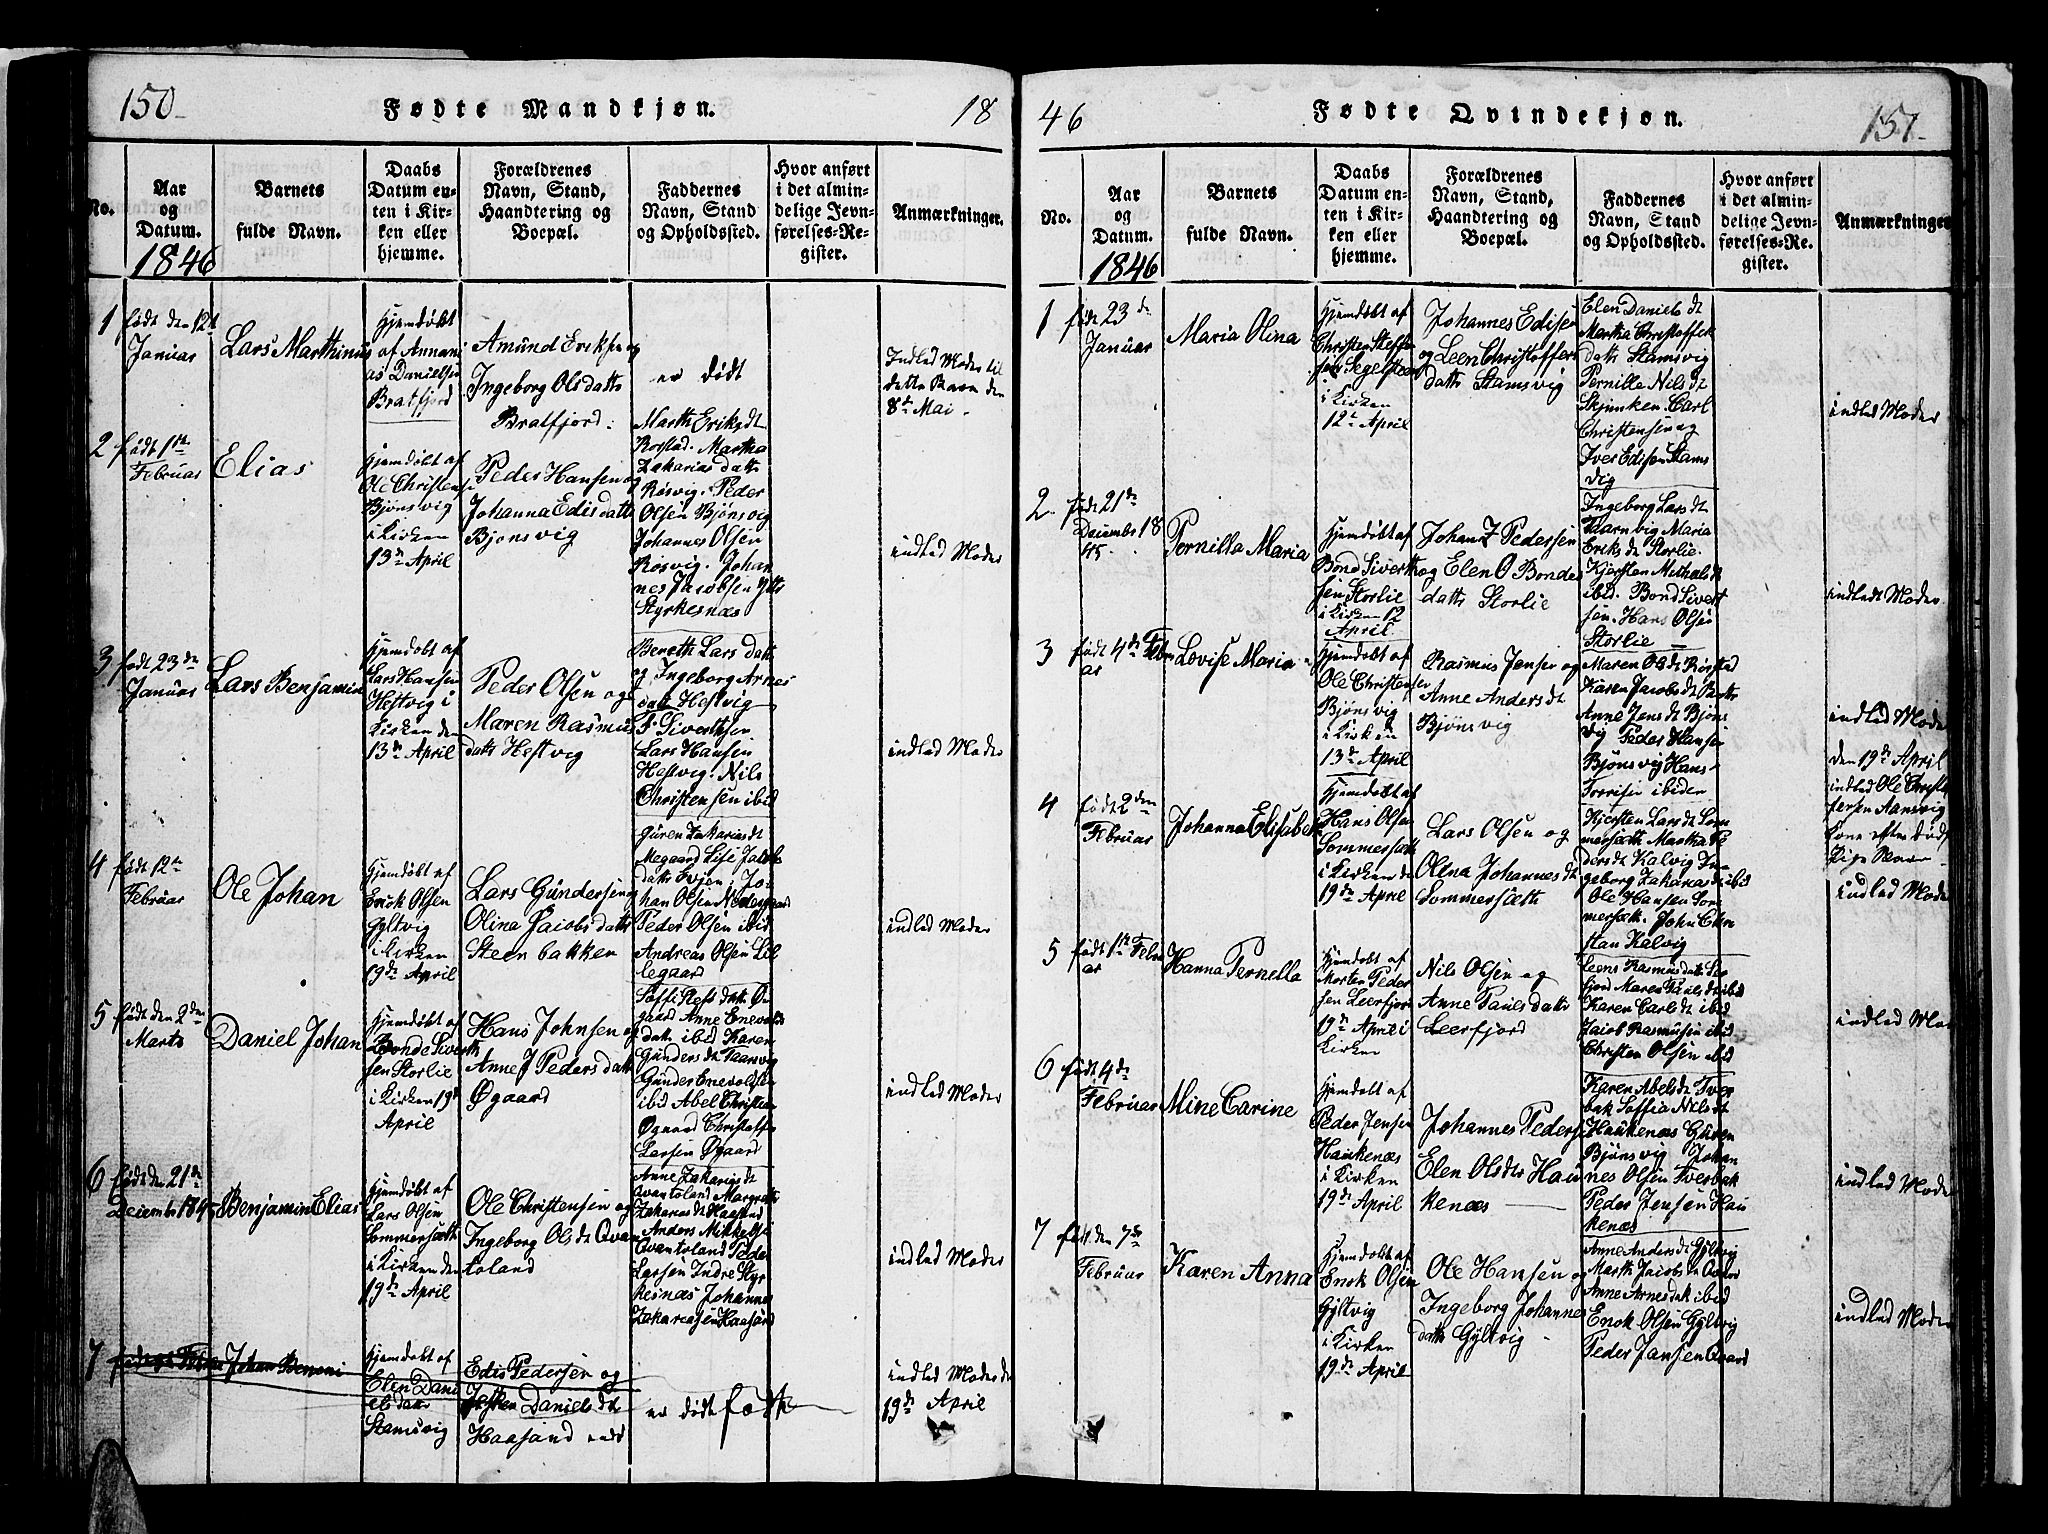 150.
Fødte Mandkjøn.
18
No.
Aar
og
Datum.
1846
Barnets
fulde Navn.
Daabs
Datum en-
ten i Kir-
ken eller
hjemme.
Forældrenes
Navn, Stand,
Haandtering og
Boepæl.
Faddernes
Navn, Stand
og Opholdssted.
Hvor anført
i det almin-
delige Jevn-
førelses-Re-
gister.
Anmærkninger.
1
født den 12t
Januar
Lars Marthinus
Hjemdøbt
af Annani
as Danielsen
Bratfjord
Amund Eriksen og
Ingeborg Olsdatts
Bratfjord
er død
Indled Moder til
dette Barn den
8de Mai
2
født 1ste
Februar
Elias
Hjemdøbt af
Ole Christense
Bjønsvig
i Kirken
13de April
Peder Hansen og
Johanna Edisdatts
Bjønsvig
Marth Eriksdt
Rorstad. Martha
Zakarias datts
Røsvig. Peder
Olsen Bjønsvig
Johannes Olsen
Røsvig. Johan
nes Jacobsen
Styrkesnæs
indled Moder
3
født 23de
Januar
Lars Benjamin
Hjemdøbt af
Lars Hansen
Hestvig i
Kirken den
13de April
Peder Olsen og
Maren Rasmus
datts Hestvig
Bereth Lars datts
og Ingeborg Arnes
datts Hestvig
P. Sivertsen
Lars Hansen
Hestvig. Nils
Christensen ibid
indled Moder
4
født 12te
Februar
Ole Johan
Hjemdøbt af
Enok Olsen
Gyltvig
i Kirken
19de April
Lars Gundersen og
Olina Jacobsdatts
Steenbakken
Guren Zakariasdt
Megaard Lise Jakobs
datts Jo-
han Olsen
Peder Olsen ibid
Andreas Olsen Lil
legaard
indled Moder
5
født den 2den
Marts
Daniel Johan
Hjemdøbt af
Bonde Sivert
sen Storlie
i Kirken 19de
April
Hans Johnsen og
Anne J Pedersdatt
Øgaard
Soffi datts Ø
gaard Anne Enevolds
datts ibid Karen
Gundersdt
Gunder Enevoldsen
ibid Abel Christian
Øgaard Christofer
Larsen Øgaard
indled Moder
6
født den 21de
Decembr 1845
Benjamin Elias
Hjemdøbt af
Lars Olsen
Sommersæth
i Kirken den
19de April
Ole Christensen og
Ingeborg Olsdt Qvan
toland
Anne Zakariasdt
Qvantoland Margrethe
Zakariasdt Haasand
Anders Mikkelsen
Qvantoland Peder
Larsen Indre Styr
kesnæs Johannes
Zakariasen Haasand
indled Moder
7
Johan Benoni
Hjemdøbt af
Elen Dani
elsdatt
Stamsvig
Edis Pedersen og
Daniels dt
Haasand
er død født
indled Moder de
19de April
46
Fødte Qvindekjøn.
151.
No.
Aar
og
Datum.
1846
Barnets
fulde Navn.
Daabs
Datum en-
ten i Kir-
ken eller
hjemme.
Forældrenes
Navn, Stand,
Haandtering og
Boepæl.
Faddernes
Navn, Stand
og Opholdssted.
Hvor anført
i det almin-
delige Jevn-
førelses-Re-
gister.
Anmærkninger
1
født 23de
Januar
Maria Olina
Hjemdøbt af
Christen Steffen
sen Segelsteen
i Kirken
12te April
Johannes Edisen
og Leen Christoffers
datts Stamsvig
Elen Daniels dt
Martha Christoffers
datts Stamsvig
Pernille Nils dt
Skjunken. Carl
Christensen og
Iver Edisen Stams
vig
indled Moder
2.
født 21de
Decembr 18
45.
Pernilla Maria
Hjemdøbt af
Bond Sivert
sen Storlie
i Kirken 12
April
Johan J Pedersen
og Elen O Bondes
datts Storlie
Ingeborg Lars dt
Taarnvig Maria
Eriksdt Storlie.
Kjersten Mithelsdt
ibid. Bond Sivert
sen. Hans Olsen
Storlie
indledt Moder
3
født 4de Febru
ar
Lovise Maria
Hjemdøbt af
Ole Christensen
Bjønsvig
i Kirken
13de April
Rasmus Jensen og
Anne Andersdt
Bjønsvig
Maren Olsdt Rørstad
Karen Jacobsdt
Anne Jensdt Bjøns
vig Peder Hansen
Bjønsvig Hans
Torrisen ibiden
indled Moder
den 19de April
indled Ole Christen
sersen Aansvig
Kone efter død
lige Barn
4
født 2den
Februar
Johanna Elisabeth
Hjemdøbt af
Hans Olsen
Sommersæth
i Kirken de
19de April
Lars Olsen og
Olina Johannesdt
Sommersæth
Kjersten Larsdt Som
mersæth Martha Pe
dersdt Kalvig In
geborg Zakariasdt ibid
Ole Hansen Som
mersæth. John Chri
stian Kalvig
indled Moder
5
født 1ste Febru
ar
Hanna Pernella
Hjemdøbt af
Morten Peder
sen Leerfjord
19de April i
Kirken
Nils Olsen og
Anne Paulsdatts
Leerfjord
Leens Rasmusdatts Leer
fjord Maren Paulsdt ibid
Karen Carlsdt ibid
Jacob Rasmusen ibid
Christen Olsen ibid
indled Moder
6
født 4de
Februar
Mine Carine
Hjemdøbt af
Peder Jensen
Haukenæs
i Kirken
19de April
Johannes Peders
Elen Olsdts Hau
kenæs
Karen Abelsdt Tver
bak Soffia Nilsdt
Haukenæs Guren
Bjønsvig Johan
nes Olsen Tverbak
Peder Jensen Hau
kenæs
indled Moder
7
født den 7de
Februar
Karen Anna
Hjemdøbt af
Enok Olsen
Gyltvig
i Kirken
19de April
Ole Hansen og
Ingeborg Johannes
datts Gyltvig
Anne Andersdt Gyltvig
Marth Jacobsdt
Anne Arnesdatt ibid
Enok Olsen Gyltvig
Peder Jansen
indled Moder